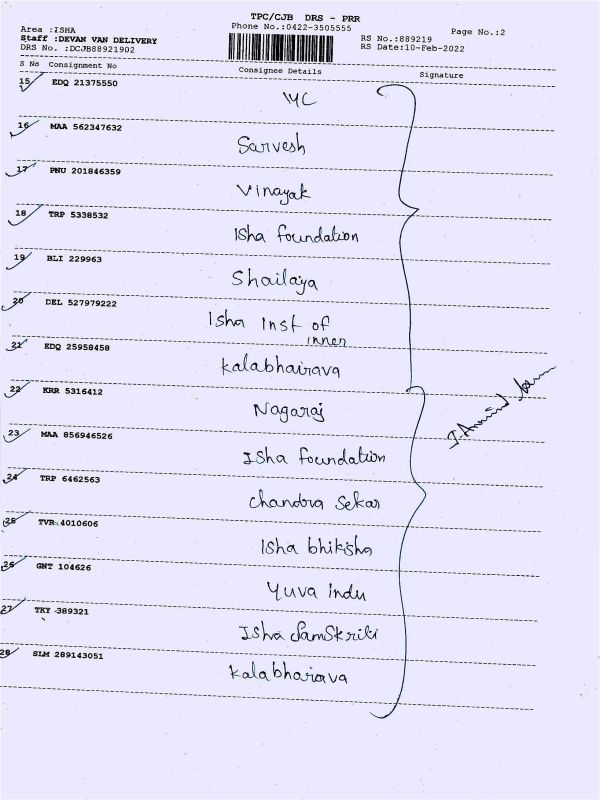 TPC/CJB DRS - PRR
Area :ISHA Phone No.:0422-3505555 Page No.:2
Staff :DEVAN VAN DELIVERY RS No.:889219
DRS No. :DCJB88921902 RS Date:10-Feb-2022
S No Consignment No Consignee Details Signature
15 EDQ 21375550
MC
16 MAA 562347632
Sarvesh
17 PNU 201846359
Vinayak
18 TRP 5338532
Isha foundation
19 BLI 229963
Shailaja
20 DEL 527979222
Isha Inst of
inner
21 EDQ 25958458
Kalabhairava
22 KRR 5316412
Nagaraj
23 MAA 856946526
Isha foundation
24 TRP 6462563
Chandra Sekar
25 TVR 4010606
Isha bhiksha
26 GNT 104626
Yuva indu
27 TKY 389321
Isha SamSkriti
28 SLM 289143051
Kalabhairava